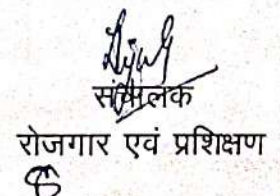 संचालक
रोजगार एवं प्रशिक्षण